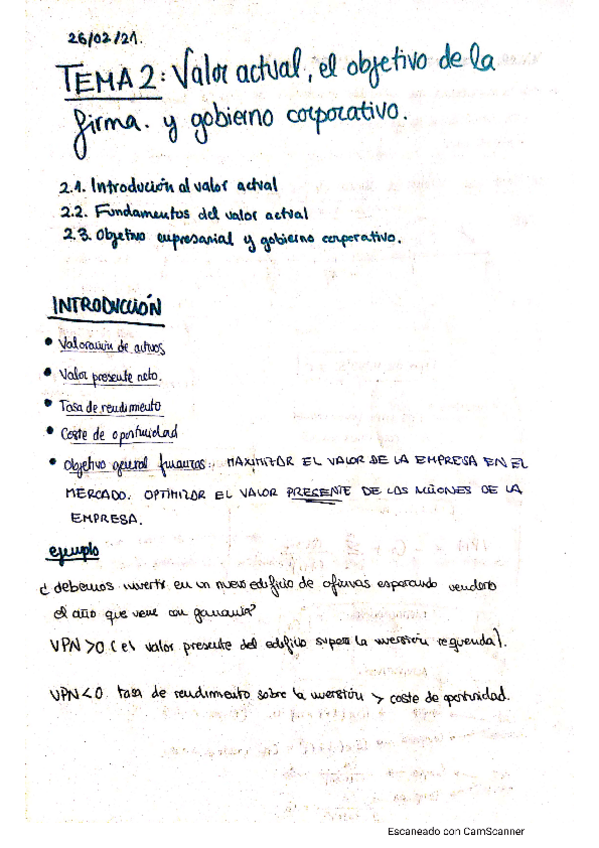 26/02/21.
TEMA 2: Valor actual, el objetivo de la
firma. y gobierno corporativo.
2.1. Introducción al valor actual
2.2. Fundamentos del valor actual
2.3. Objetivo empresarial y gobierno corporativo.
INTRODUCCIÓN
• Valoración de activos
• Valor presente neto.
• Tasa de rendimiento
• Coste de oportunidad
• Objetivo general finanzas: MAXIMIZAR EL VALOR DE LA EMPRESA EN EL
MERCADO. OPTIMIZAR EL VALOR PRESENTE DE LAS ACCIONES DE LA
EMPRESA.
ejemplo
¿ debemos invertir en un nuevo edificio de oficinas esperando venderlo
el año que viene con ganancia?
VPN >0 ( el valor presente del edificio supera la inversión requerida).
VPN <0. tasa de rendimiento sobre la inversión > coste de oportunidad.
Escaneado con CamScanner